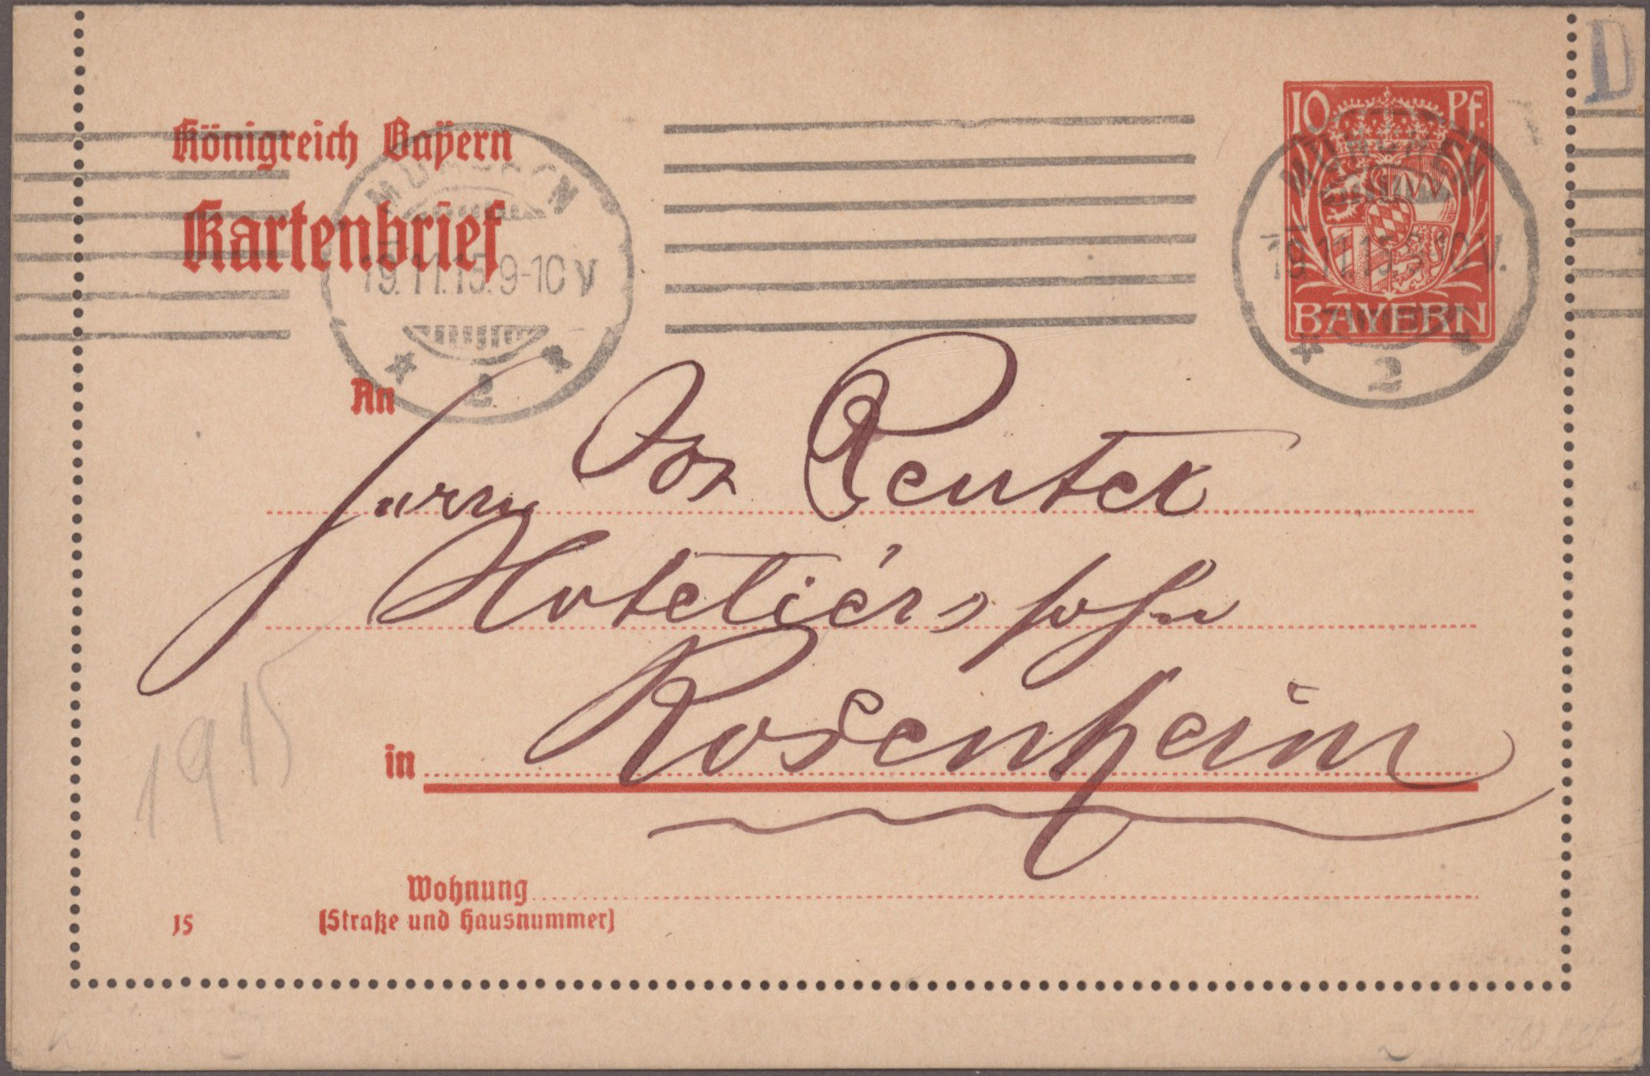 10 Pf.
BAYERN
D
Königreich Bayern
Kartenbrief
MÜNCHEN
19.11.15.9-10 V
2
MÜNCHEN
19.11.15.9-10 V.
2
An
Herrn Jos Reuter
Hoteliérssohn
in Rosenheim
1915
Wohnung
(Straße und Hausnummer)
15